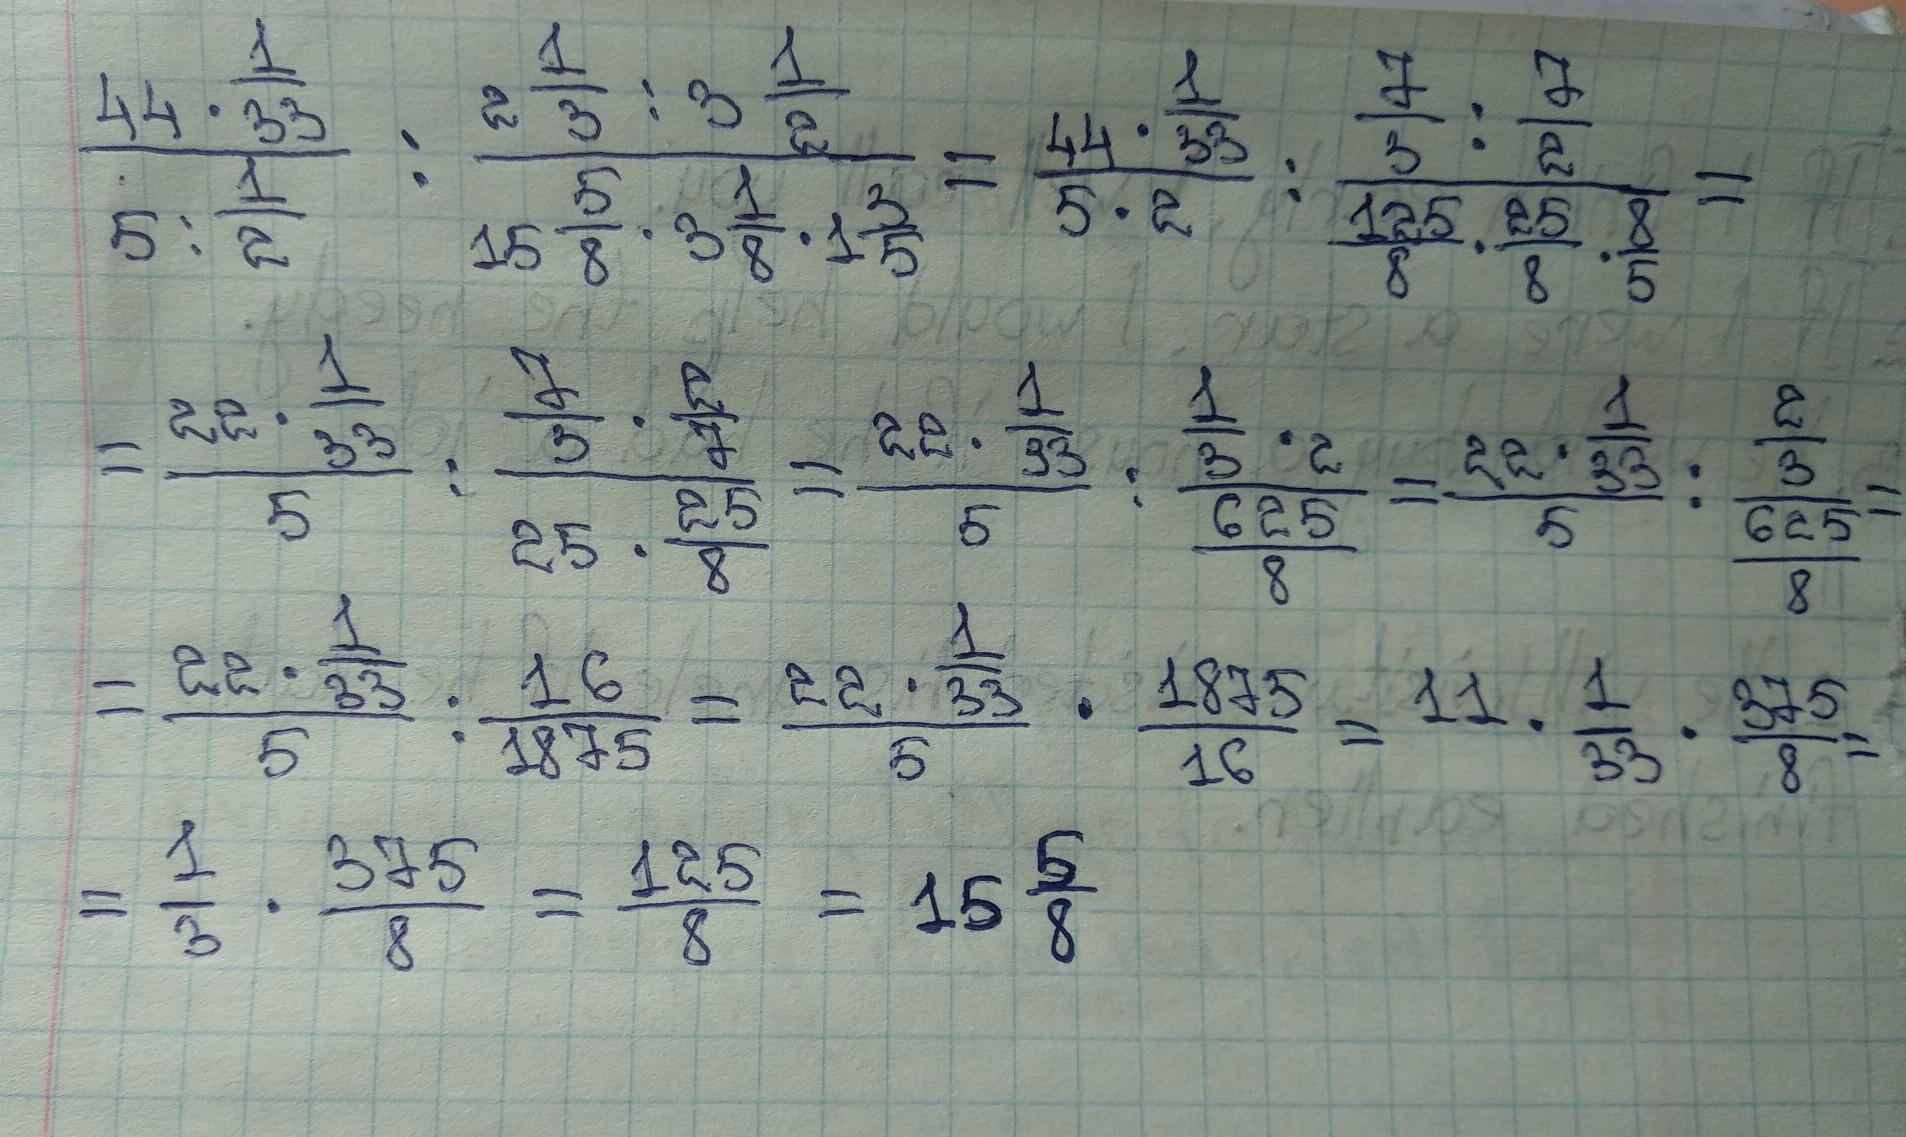 (44 · 1/33)/(5 : 1/2) : (2 1/3 : 3 1/2)/(15 5/8 · 3 1/8 · 1 3/5) = (44 · 1/33)/(5 · 2) : (7/3 : 7/2)/(125/8 · 25/8 · 8/5) =
= (22 · 1/33)/5 : (7/3 · 2/7)/(25 · 25/8) = (22 · 1/33)/5 : (1/3 · 2)/(625/8) = (22 · 1/33)/5 : (2/3)/(625/8) =
= (22 · 1/33)/5 : 16/1875 = (22 · 1/33)/5 · 1875/16 = 11 · 1/33 · 375/8 =
= 1/3 · 375/8 = 125/8 = 15 5/8